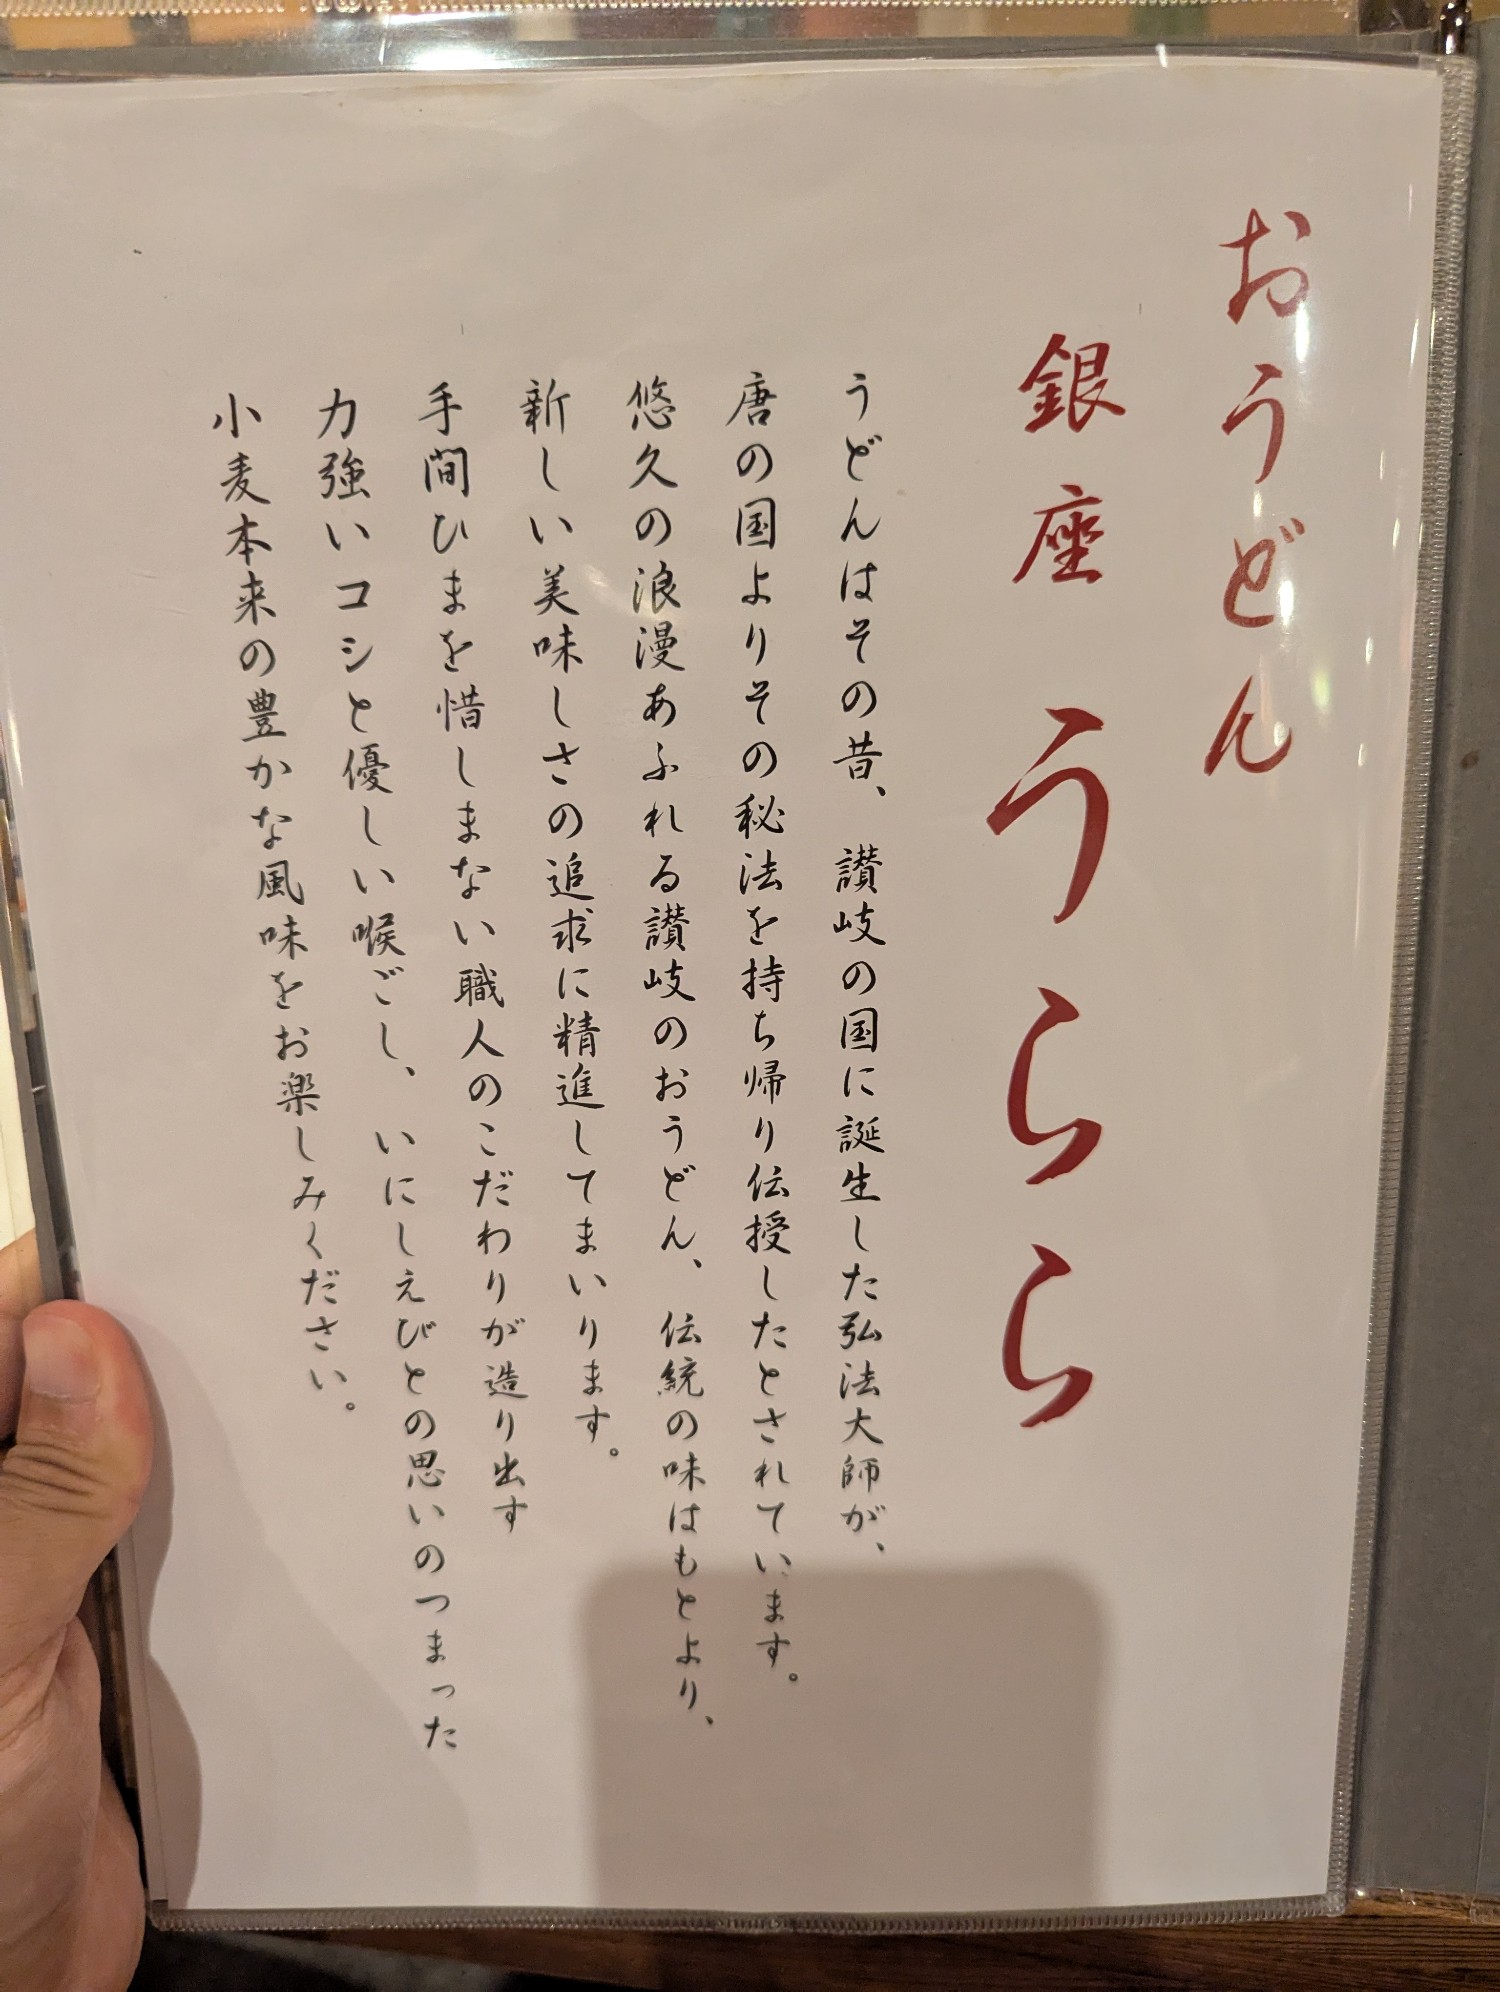 おうどん
銀座 うらら
うどんはその昔、讃岐の国に誕生した弘法大師が、
唐の国よりその秘法を持ち帰り伝授したとされています。
悠久の浪漫あふれる讃岐のおうどん、伝統の味はもとより、
新しい美味しさの追求に精進してまいります。
手間ひまを惜しまない職人のこだわりが造り出す
力強いコシと優しい喉ごし、いにしえびとの思いのつまった
小麦本来の豊かな風味をお楽しみください。